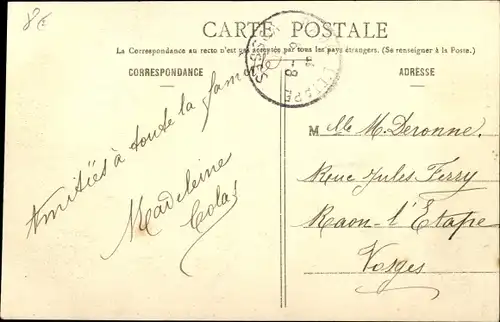 8€
CARTE POSTALE
La Correspondance au recto n'est pas acceptée par tous les pays étrangers. (Se renseigner à la Poste.)
CORRESPONDANCE
ADRESSE
Amitiés à toute la fam
Madeleine
Colas
M elle M. Deronne.
Rue Jules Ferry
Raon-l'Étape
Vosges
L'ETAPE
VOSGES